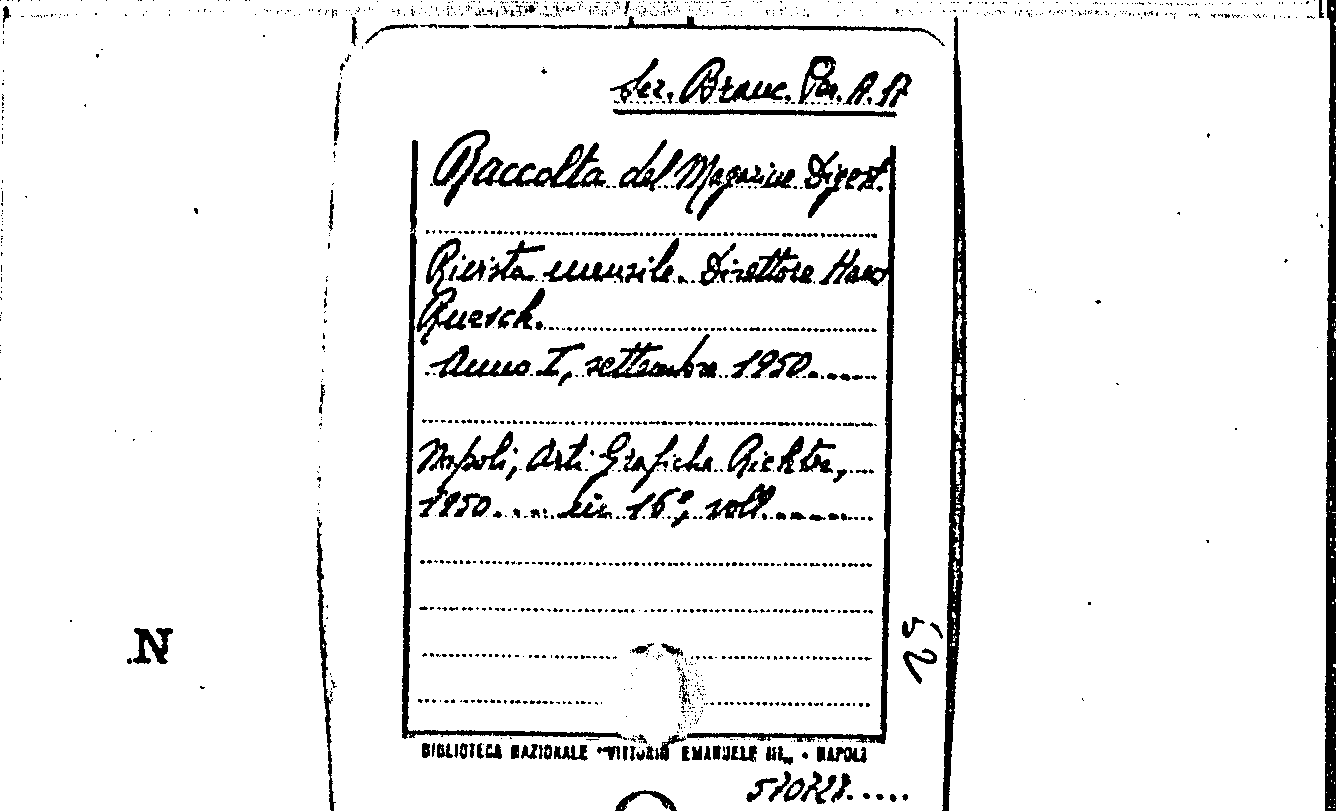 Sez. Branc. Per. A. 17
Raccolta del Magazine Digest.
Rivista mensile. Direttore Hans
Ruesch.
Anno I, settembre 1950.....
Napoli, Arti Grafiche Richter,
1950.... in 16°, voll.
N
BIBLIOTECA NAZIONALE "VITTORIO EMANUELE III„ - NAPOLI